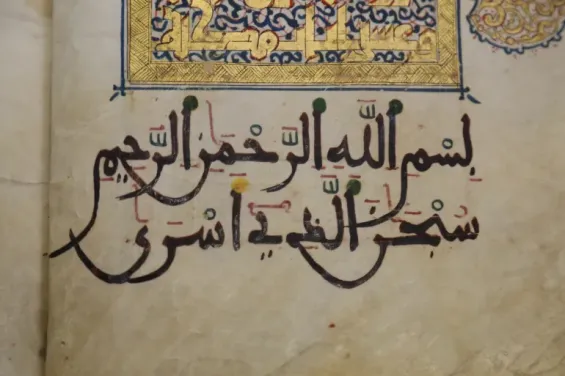 بِسْمِ اللَّهِ الرَّحْمَٰنِ الرَّحِيمِ
سُبْحَٰنَ الَّذِي أَسْرَىٰ